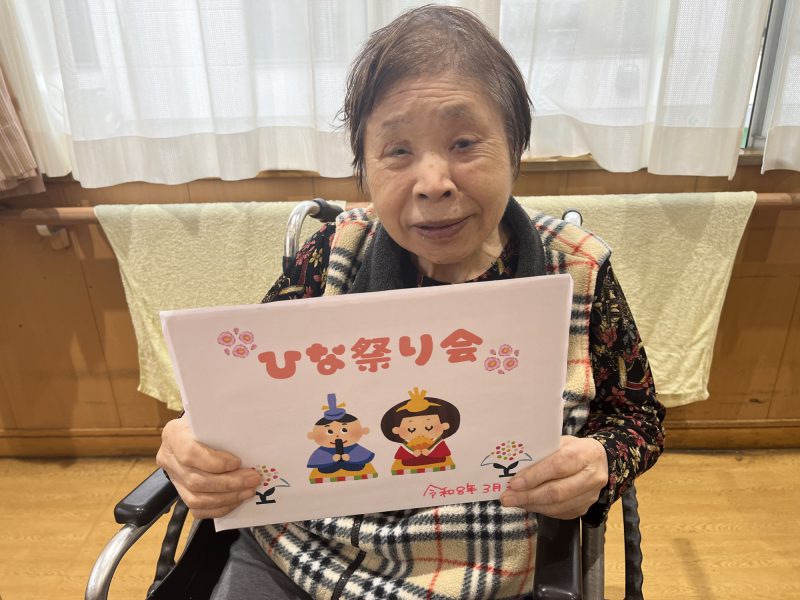 ひな祭り会
令和8年 3月